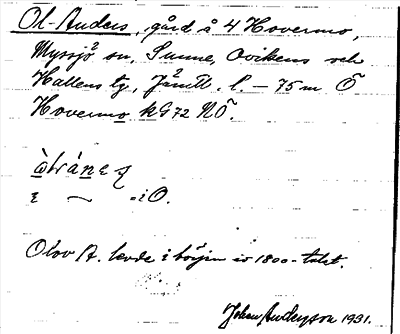 Ol-Anders, gård å 4 Hovermo,
Myssjö sn, Sunne, Ovikens och
Hallens tg, Jämtl. l. – 75 m Ö
Hovermo kG72 NÖ.
i ~ = i O.
Olov A. levde i början av 1800-talet.
Johan Anderzson 1931.